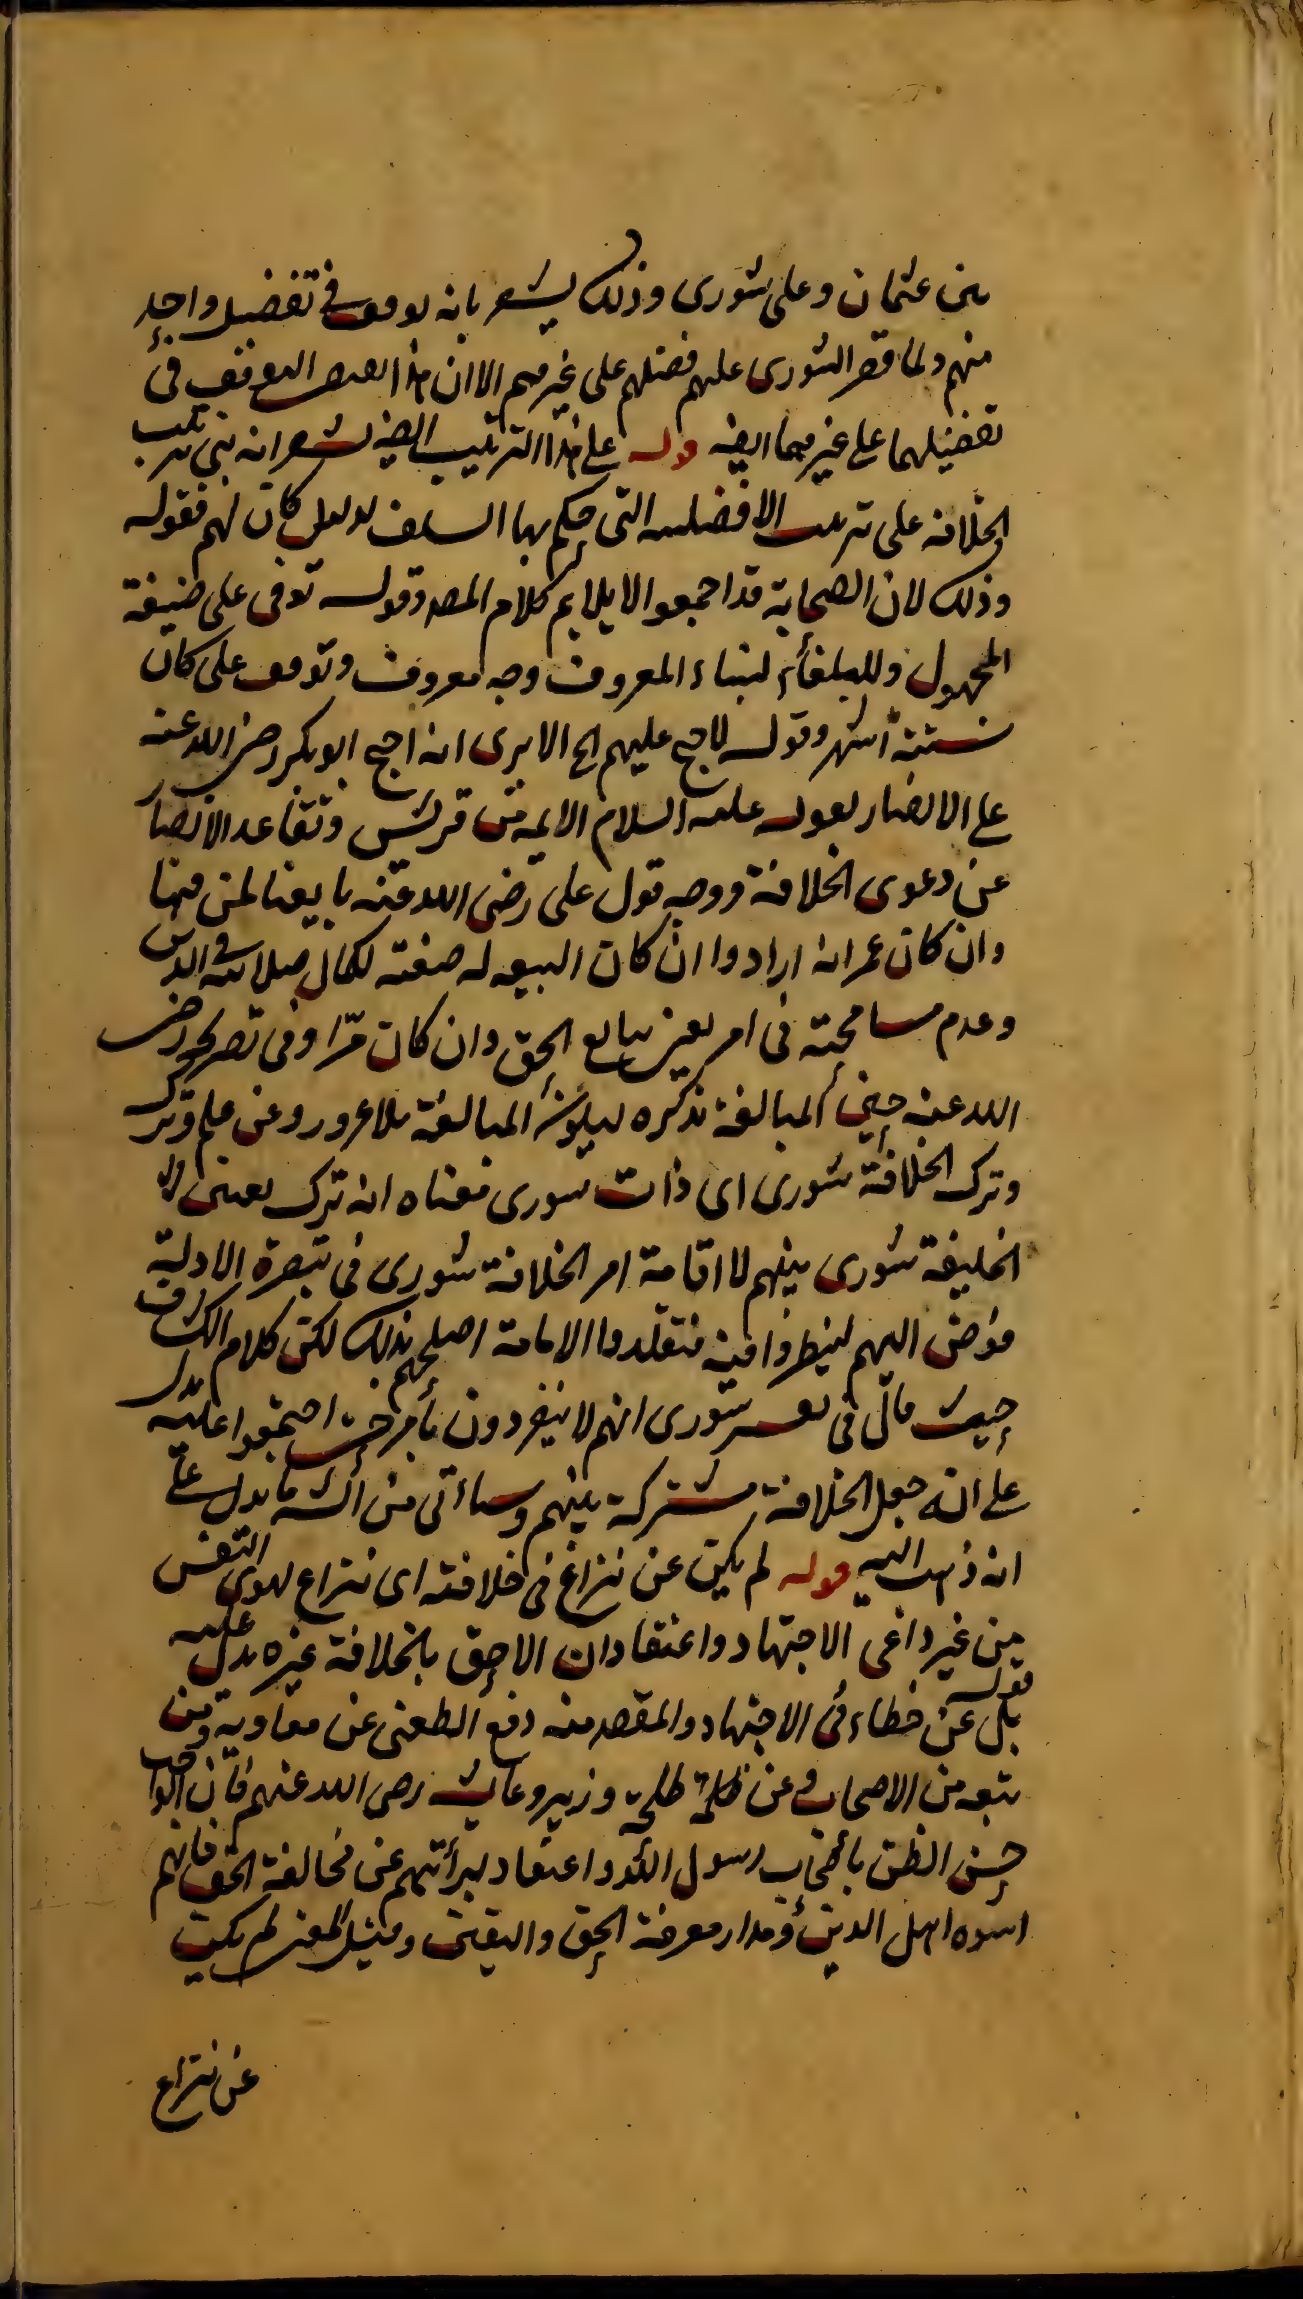 بين عثمان وعلى شورى وذلك يشعر بانه توقف فى تفضيل واحد
منهم ولما قصر الشورى عليهم فضلهم على غيرهم الا ان هذا التوقف فى
تفضيلهما على غيرهما ايضا قوله على هذا الترتيب ايضا يشعر انه بنى ترتيب
الخلافة على ترتيب الافضلية التى حكم بها السلف لدليل كان لهم فقوله
وذلك لان الصحابة قد اجمعوا لا يلايم كلام المصه وقوله توفى على صيغة
المجهول لبناء المعروف وجه معروف وتوقف على كان
ستة اشهر وقوله لاحتج عليهم الخ الا يرى انه احتج ابو بكر رضى الله عنه
على الانصار بقوله عليه السلام الايمة من قريش وتقاعد الانصار
عن دعوى الخلافة ووجه قول على رضى الله عنه بايعنا لمن فيها
وان كان عمر انه ارادوا ان كان البيعة له صعبة لكمال صلابته فى الدين
وعدم مسامحته فى امر يعنى نبايع الحق وان كان مرا وفى تصريحه رضى
الله عنه المبالغة تذكره ليكون المبالغة بلا غرور وعن علم وترك
وترك الخلافة شورى اى ذات شورى فمعناه انه ترك تعيين
الخليفة شورى بينهم لا اقامة امر الخلافة شورى فى تبصرة الادلة
فوض اليهم لينظروا فيه فتقلدوا الامامة اصلحهم بذلك لكن كلام الش
حيث قال فى شورى انهم لا ينفردون بأمر حتى اجتمعوا عليه يدل
على انه جعل الخلافة مشتركة بينهم وسيأتى من الشه ما يدل على
انه ذهب اليه قوله لم يكن عن نزاع فى خلافته اى نزاع لهوى النفس
من غير داعى الاجتهاد واعتقاد ان الاحق بالخلافة غيره يدل عليه قوله
بل عن خطاء فى الاجتهاد والمقصد منه دفع الطعن عن معاوية ومن
تبعه من الاصحاب وعن طلحة وزبير وعايشه رضى الله عنهم فان الواجب
حسن الظن باصحاب رسول الله واعتقاد لبرأتهم عن مخالفة الحق فانهم
اسوه اهل الدين ومدار معرفة الحق واليقين ومثل لم يكن
عن نزاع